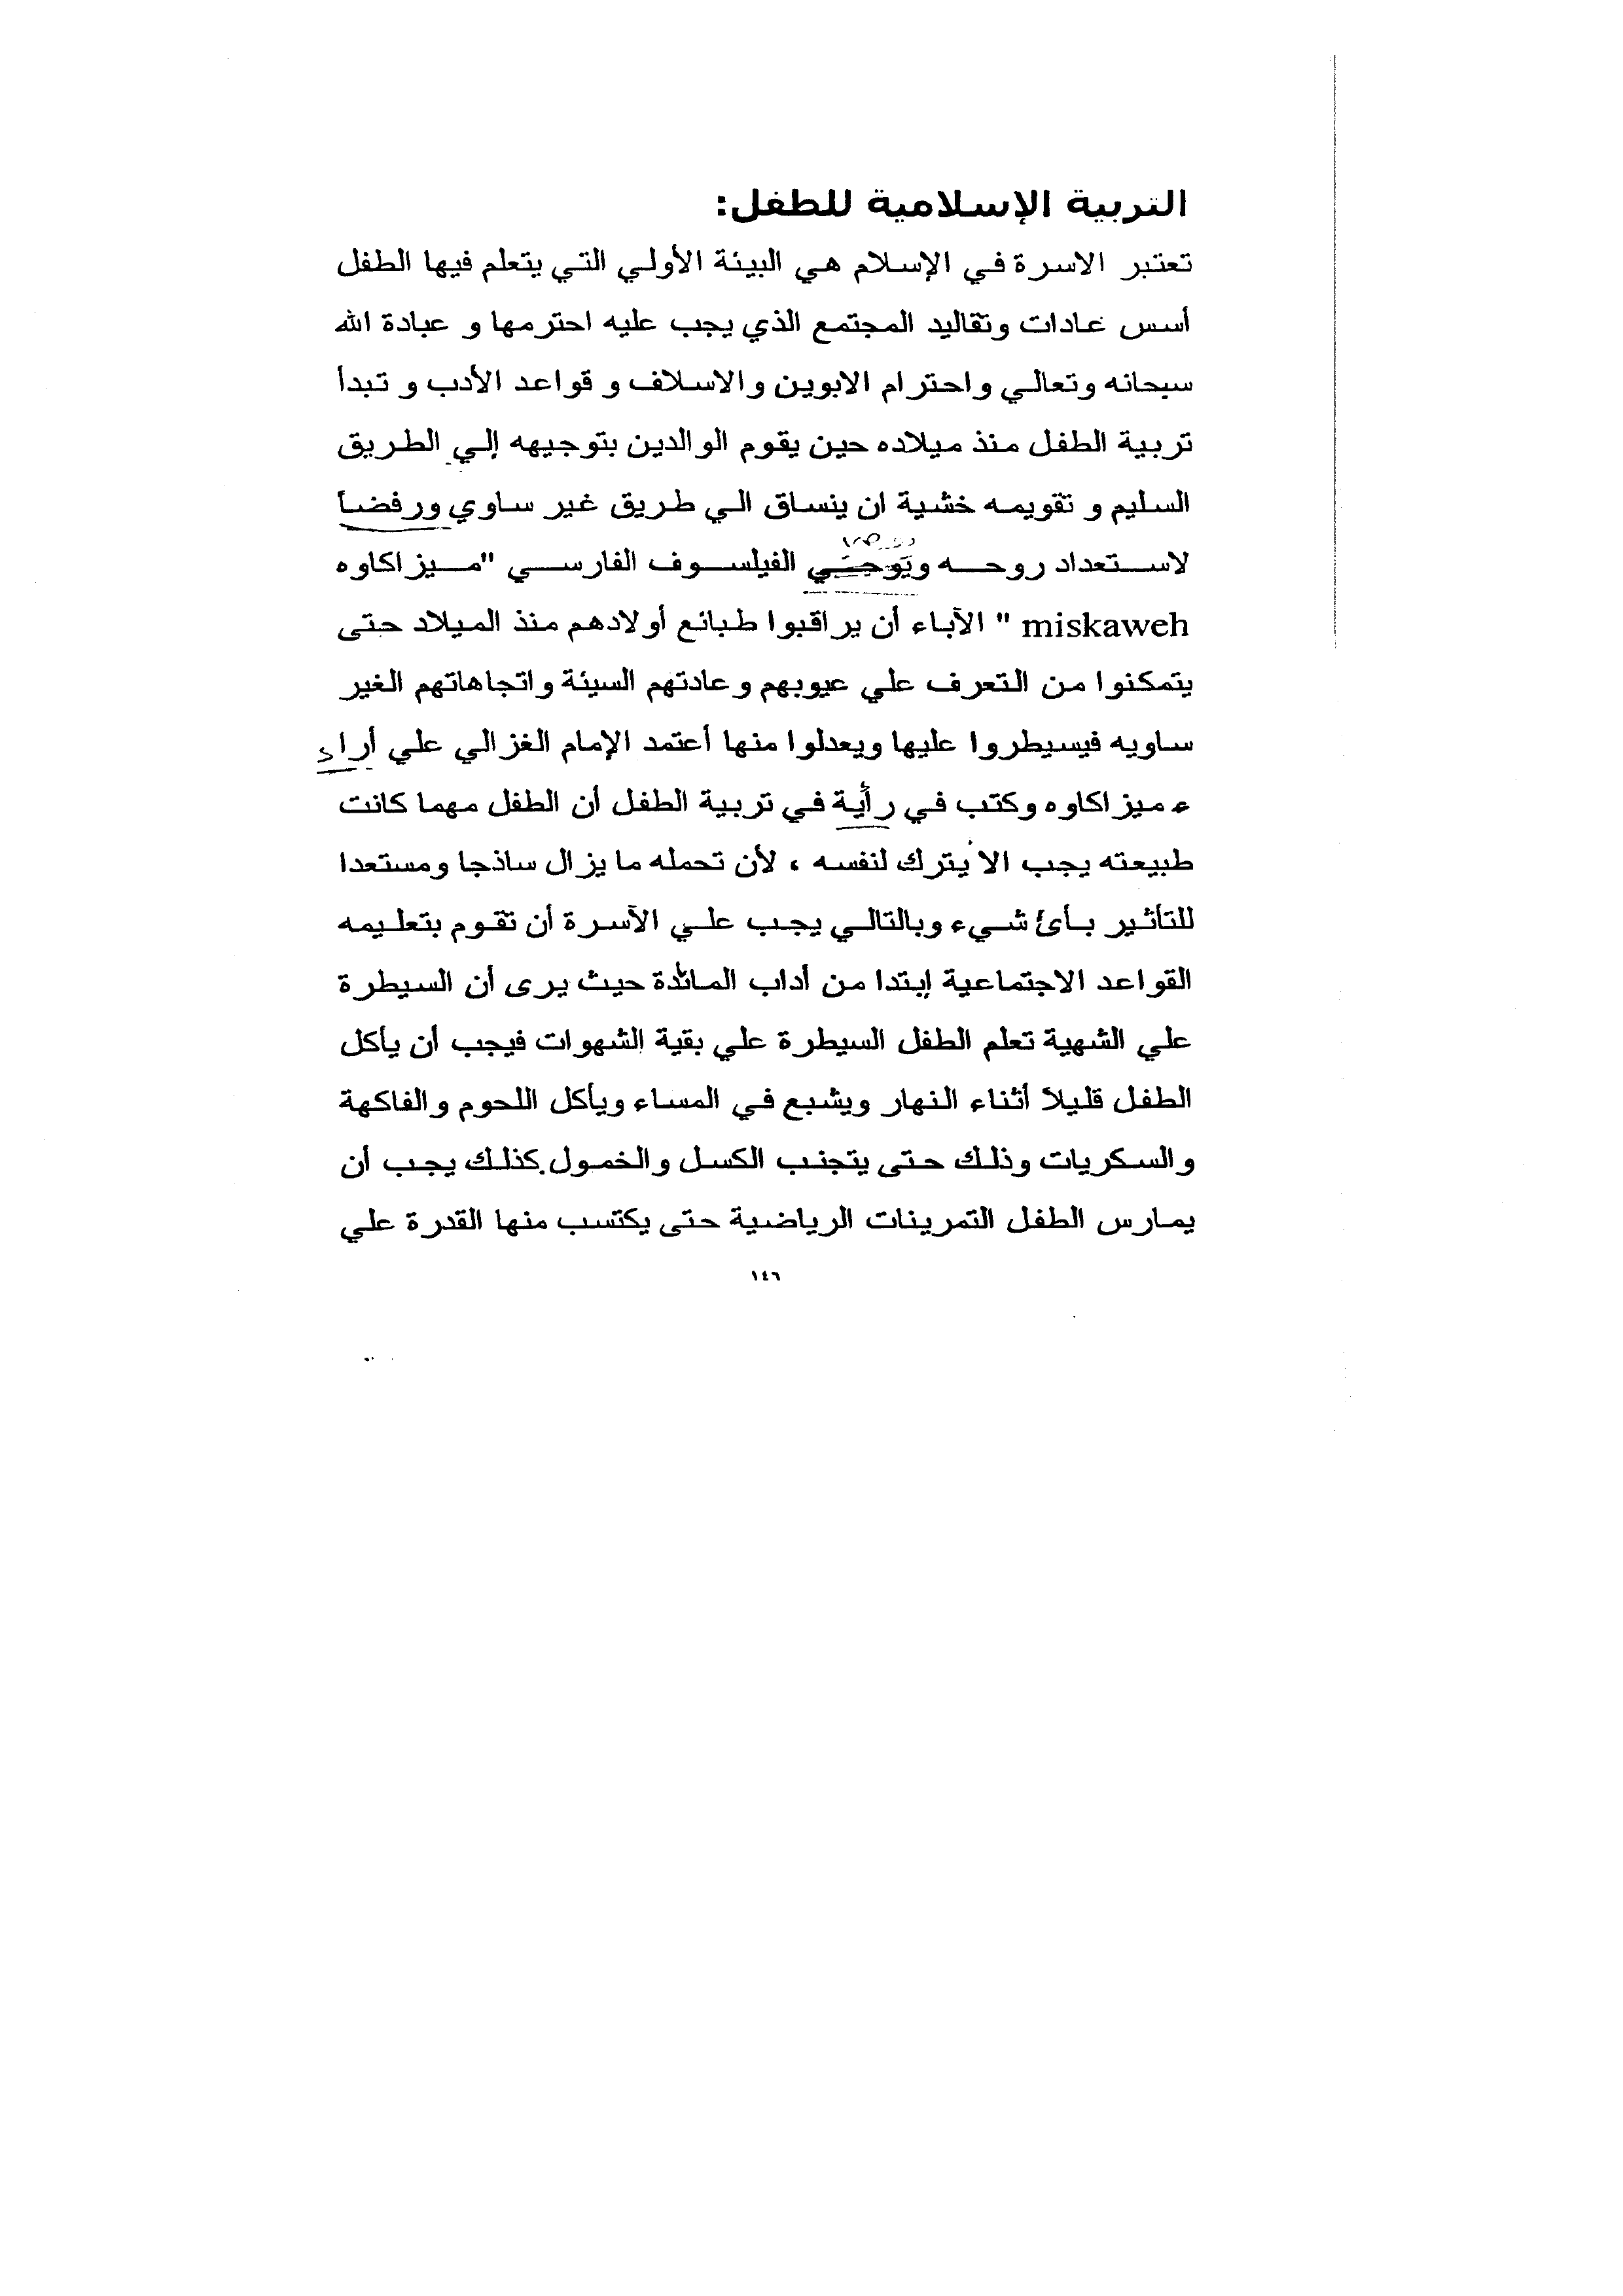 التربية الإسلامية للطفل:
تعتبر الاسرة في الإسلام هي البيئة الأولي التي يتعلم فيها الطفل
أسس عادات وتقاليد المجتمع الذي يجب عليه احترمها و عبادة الله
سبحانه وتعالي واحترام الابوين والاسلاف و قواعد الأدب و تبدأ
تربية الطفل منذ ميلاده حين يقوم الوالدين بتوجيهه إلي الطريق
السليم و تقويمه خشية ان ينساق الي طريق غير ساوي ورفضا
لاستعداد روحه الفيلسوف الفارسي "ميزاكاوه
miskaweh " الآباء أن يراقبوا طبائع أولادهم منذ الميلاد حتى
يتمكنوا من التعرف علي عيوبهم وعادتهم السيئة واتجاهاتهم الغير
ساويه فيسيطروا عليها ويعدلوا منها أعتمد الإمام الغزالي علي أرا
ء ميزاكاوه وكتب في رأية في تربية الطفل أن الطفل مهما كانت
طبيعته يجب الا يترك لنفسه ، لأن تحمله مايزال ساذجا ومستعدا
للتأثير بأئ شيء وبالتالي يجب علي الآسرة أن تقوم بتعليمه
القواعد الاجتماعية إبتدا من أداب المائدة حيث يرى أن السيطرة
علي الشهية تعلم الطفل السيطرة علي بقية الشهوات فيجب أن يأكل
الطفل قليلاً أثناء النهار ويشبع في المساء ويأكل اللحوم والفاكهة
والسكريات وذلك حتى يتجنب الكسل والخمول.كذلك يجب أن
يمارس الطفل التمرينات الرياضية حتى يكتسب منها القدرة علي
١٤٦